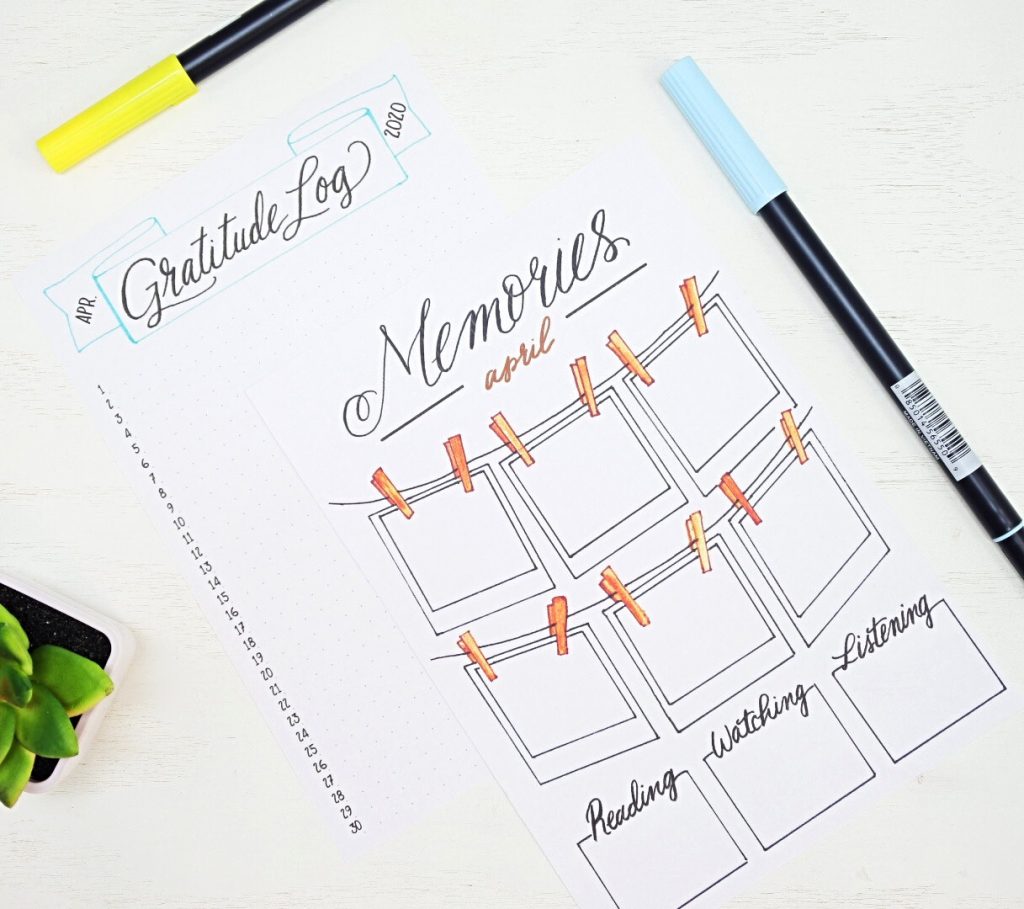 Gratitude Log
APR.
2020
1
2
3
4
5
6
7
8
9
10
11
12
13
14
15
16
17
18
19
20
21
22
23
24
25
26
27
28
29
30
Memories
april
Reading
Watching
Listening
0 85014 56550 9